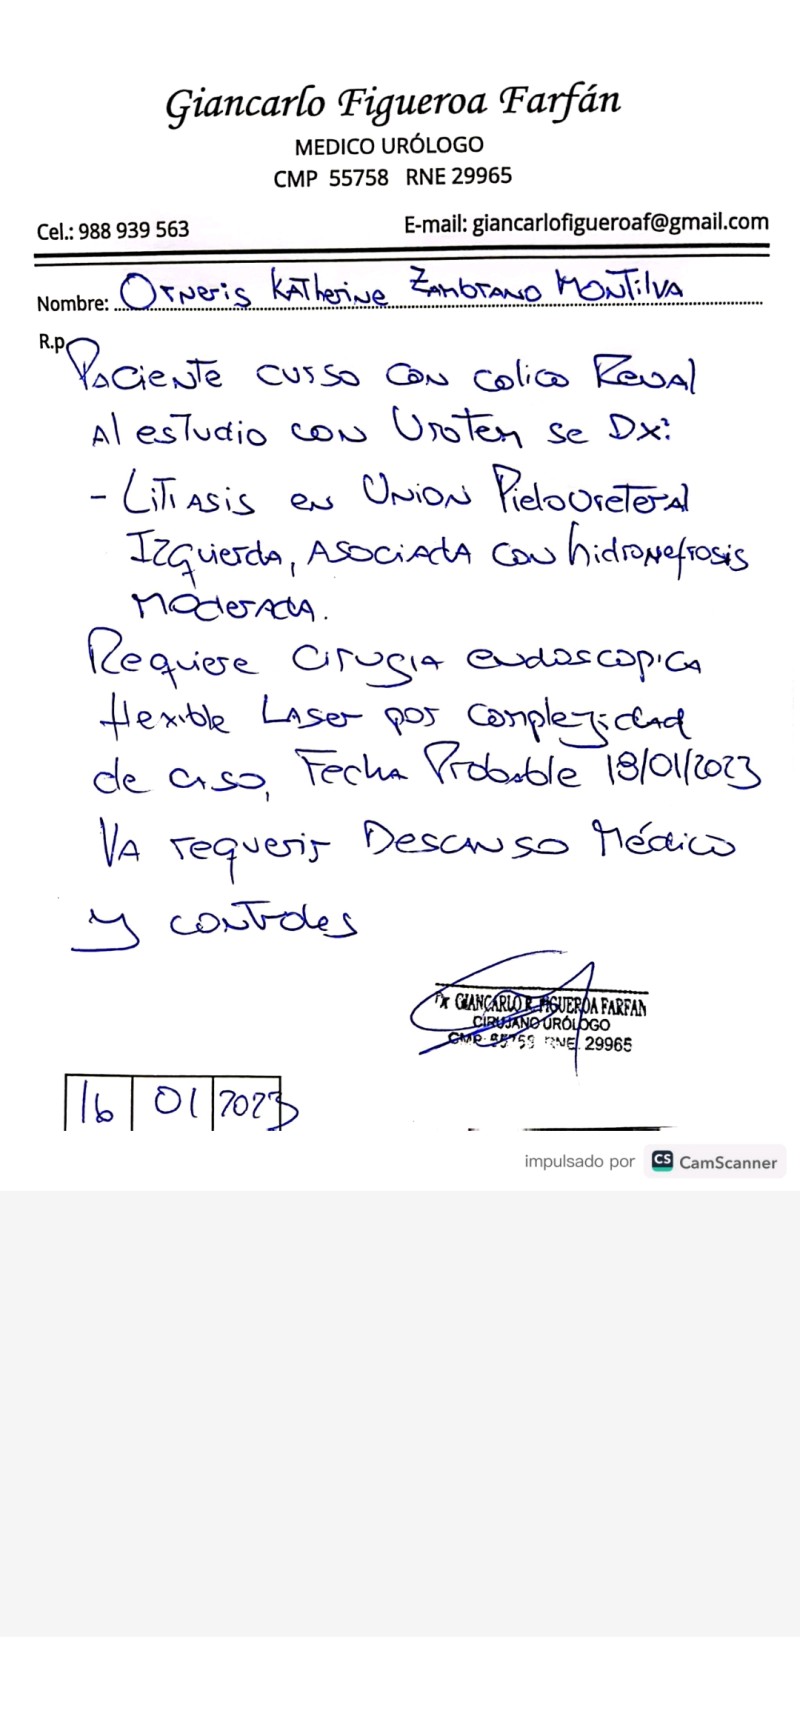 Giancarlo Figueroa Farfán
MEDICO URÓLOGO
CMP 55758 RNE 29965
Cel.: 988 939 563 E-mail: giancarlofigueroaf@gmail.com
Nombre: Orneris Katherine Zambrano Montilva
R.p
Paciente curso con colico Renal
Al estudio con Urotem se Dx:
- Litiasis en Union Pieloureteral
Izquierda, Asociada con hidronefrosis
moderada.
Requiere cirugia endoscopica
flexible Laser por complejidad
de caso, Fecha Probable 18/01/2023
Va requerir Descanso Médico
y controles
Dr GIANCARLO R. FIGUEROA FARFAN
CIRUJANO URÓLOGO
CMP 55758 RNE. 29965
16 01 2023
impulsado por CS CamScanner